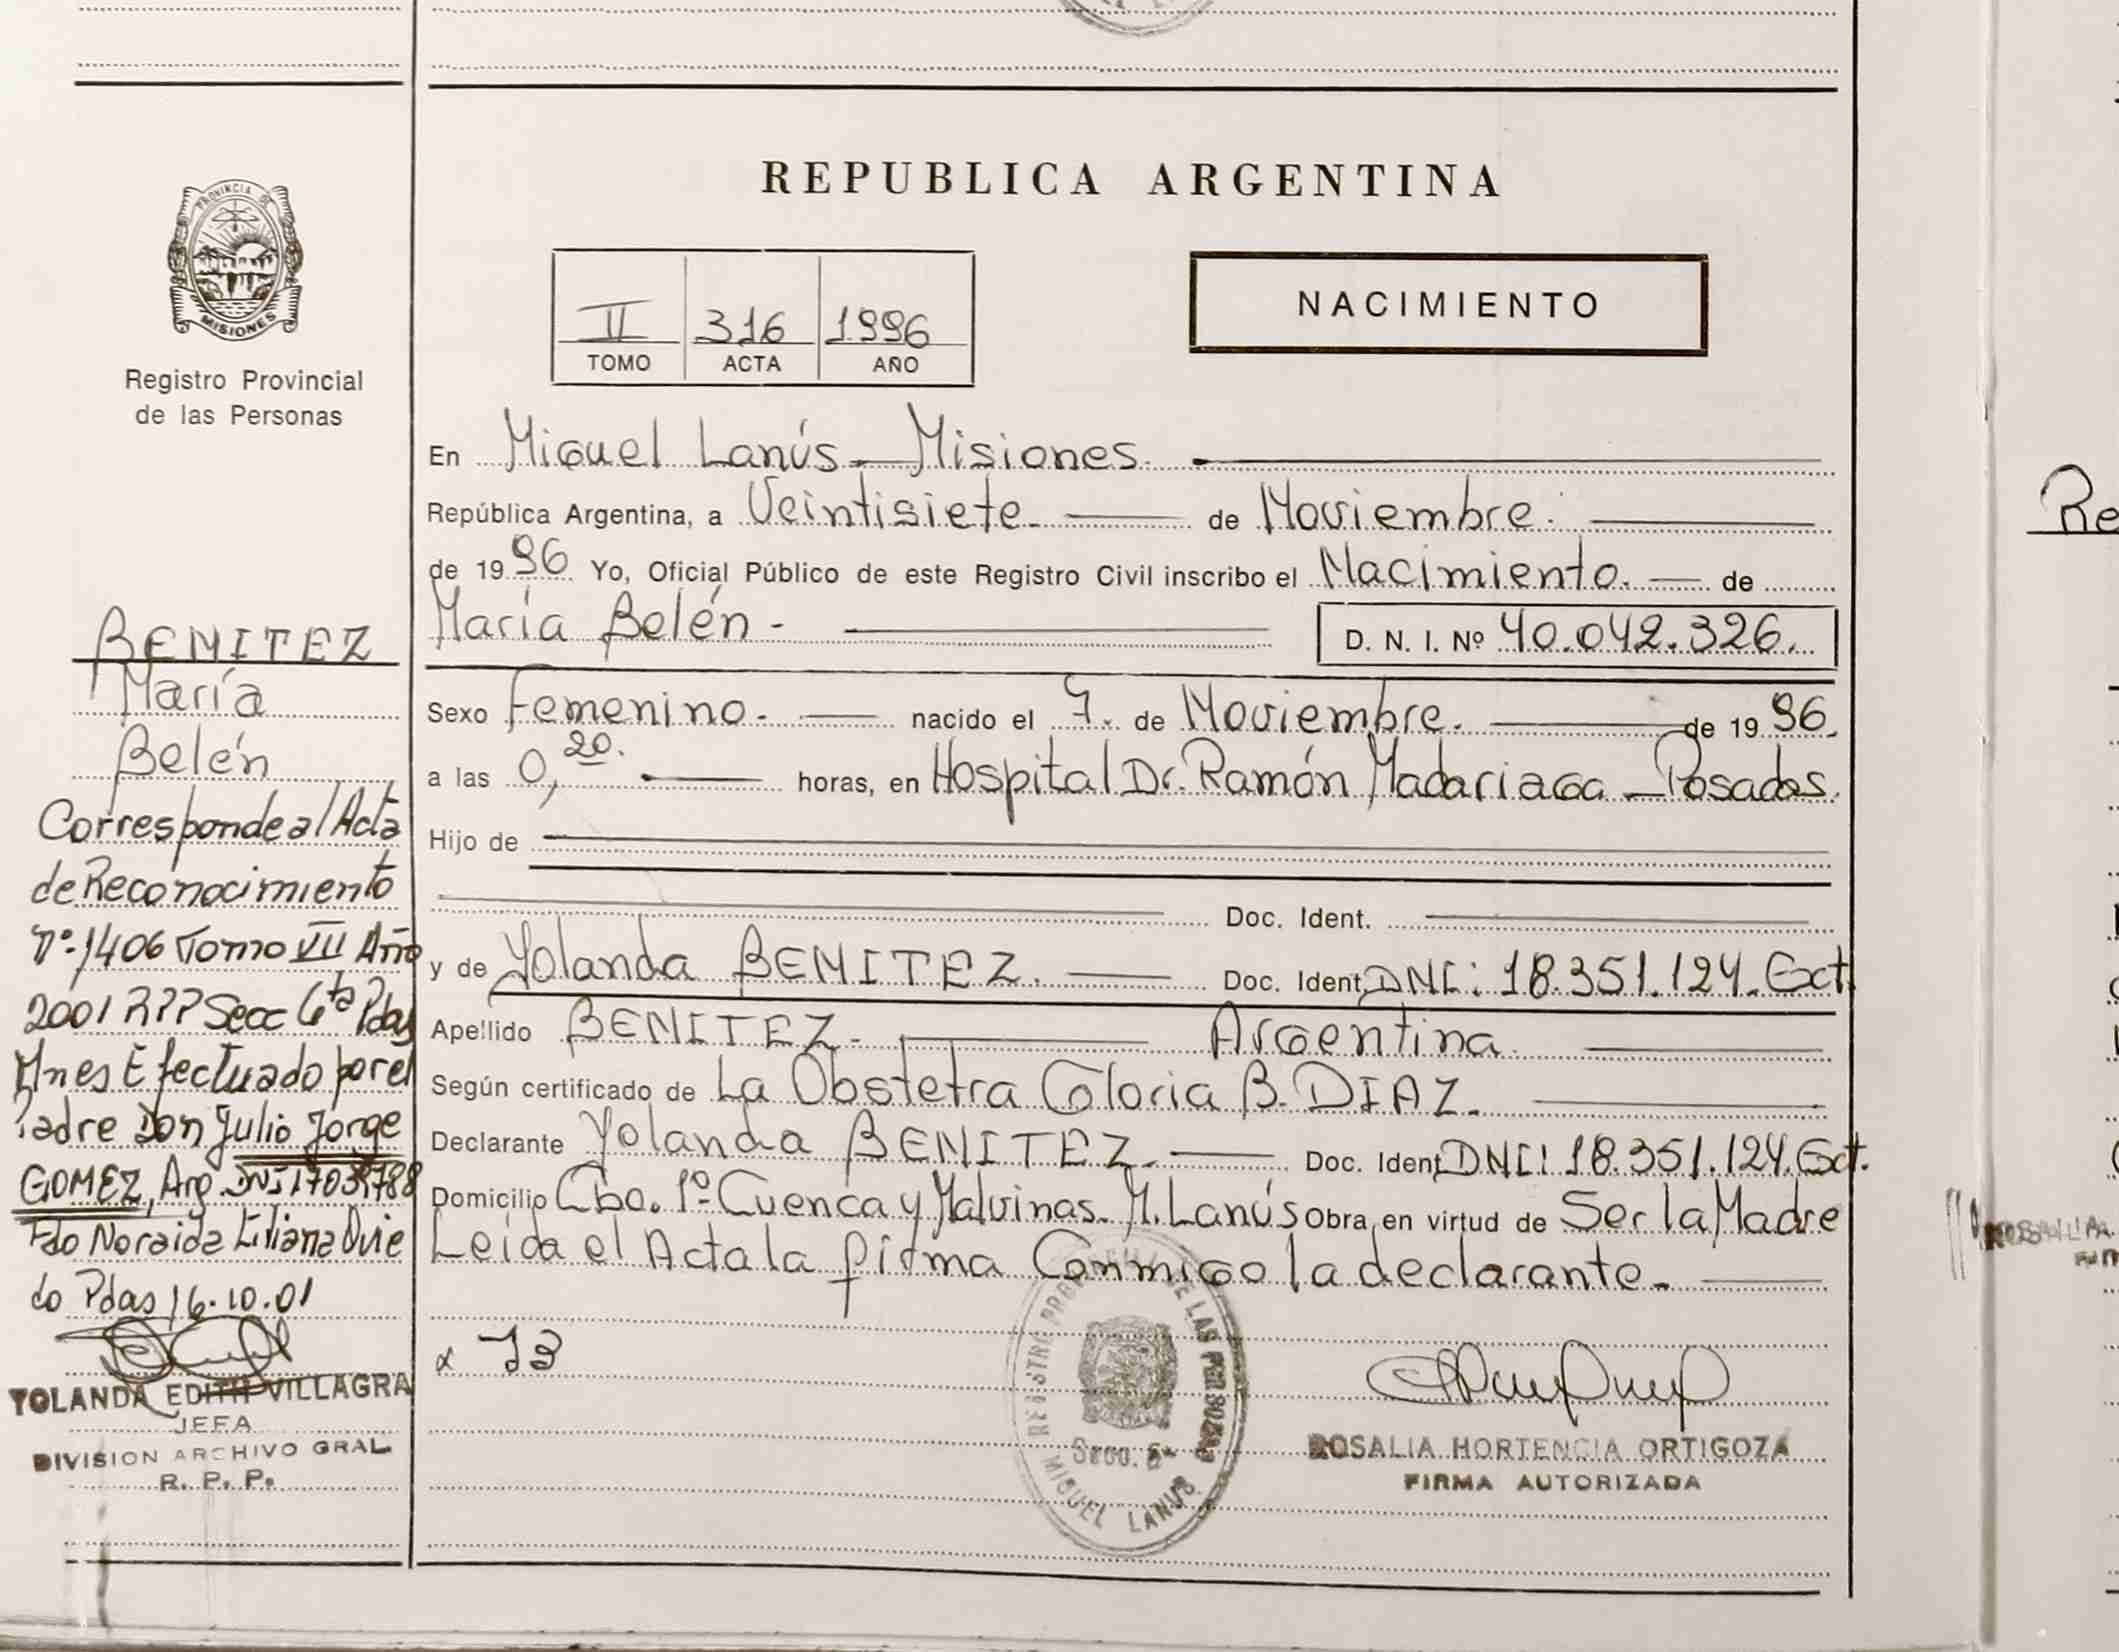 PROVINCIA DE
MISIONES
Registro Provincial
de las Personas
BENITEZ
María
Belén
Corresponde al Acta
de Reconocimiento
Nº 1406 Tomo VII Año
2001 RPP Secc 6ta Pdas
Mnes Efectuado por el
Padre Don Julio Jorge
GOMEZ, Arg. DNI
Fdo Noraida Liliana Ovie
do Pdas 16.10.01
YOLANDA EDITH VILLAGRA
JEFA
DIVISION ARCHIVO GRAL
R. P. P.
REPUBLICA ARGENTINA
II 316 1996
TOMO ACTA AÑO
NACIMIENTO
En Miguel Lanús - Misiones.
República Argentina, a Veintisiete. de Noviembre.
de 1996 Yo, Oficial Público de este Registro Civil inscribo el Nacimiento. de
María Belén - D. N. I. Nº 40.042.326.
Sexo Femenino. nacido el 7. de Noviembre. de 1996.
a las 0,20. horas, en Hospital Dr. Ramón Madariaga - Posadas.
Hijo de
Doc. Ident.
y de Yolanda BENITEZ. Doc. Ident. DNI: 18.351.124. Ext.
Apellido BENITEZ. Argentina.
Según certificado de La Obstetra Gloria B. DIAZ.
Declarante Yolanda BENITEZ. Doc. Ident. DNI: 18.351.124. Ext.
Domicilio Cbo. 1º Cuenca y Malvinas. M. Lanús obra, en virtud de Ser la Madre
Leída el Acta la firma Conmigo la declarante.
REGISTRO PROVINCIAL DE LAS PERSONAS
Secc.
MIGUEL LANUS
ROSALIA HORTENCIA ORTIGOZA
FIRMA AUTORIZADA
Re